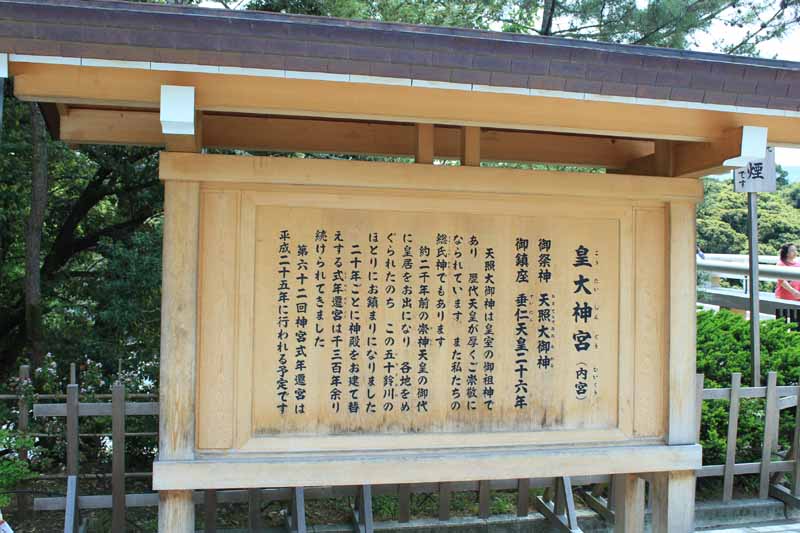 皇大神宮(内宮)
こうたいじんぐう ないくう
御祭神 天照大御神
御鎮座 垂仁天皇二十六年
天照大御神は皇室の御祖神で
あり 歴代天皇が厚くご崇敬に
なられています また私たちの
総氏神でもあります
約二千年前の崇神天皇の御代
に皇居をお出になり 各地をめ
ぐられたのち この五十鈴川の
ほとりにお鎮まりになりました
二十年ごとに神殿をお建て替
えする式年遷宮は千三百年余り
続けられてきました
第六十二回神宮式年遷宮は
平成二十五年に行われる予定です
煙
です